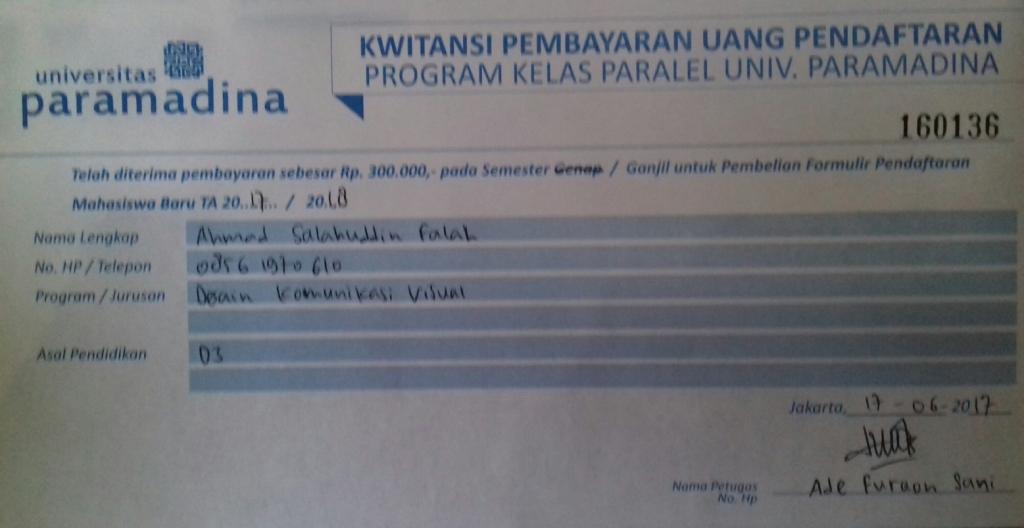 universitas
paramadina
KWITANSI PEMBAYARAN UANG PENDAFTARAN
PROGRAM KELAS PARALEL UNIV. PARAMADINA
160136
Telah diterima pembayaran sebesar Rp. 300.000,- pada Semester Genap / Ganjil untuk Pembelian Formulir Pendaftaran
Mahasiswa Baru TA 20..17.. / 20.18
Nama Lengkap Ahmad Salahuddin Falah
No. HP / Telepon 0856 1970 610
Program / Jurusan Desain Komunikasi Visual
Asal Pendidikan D3
Jakarta, 17 - 06 - 2017
Nama Petugas Ade Furqon Sani
No. Hp